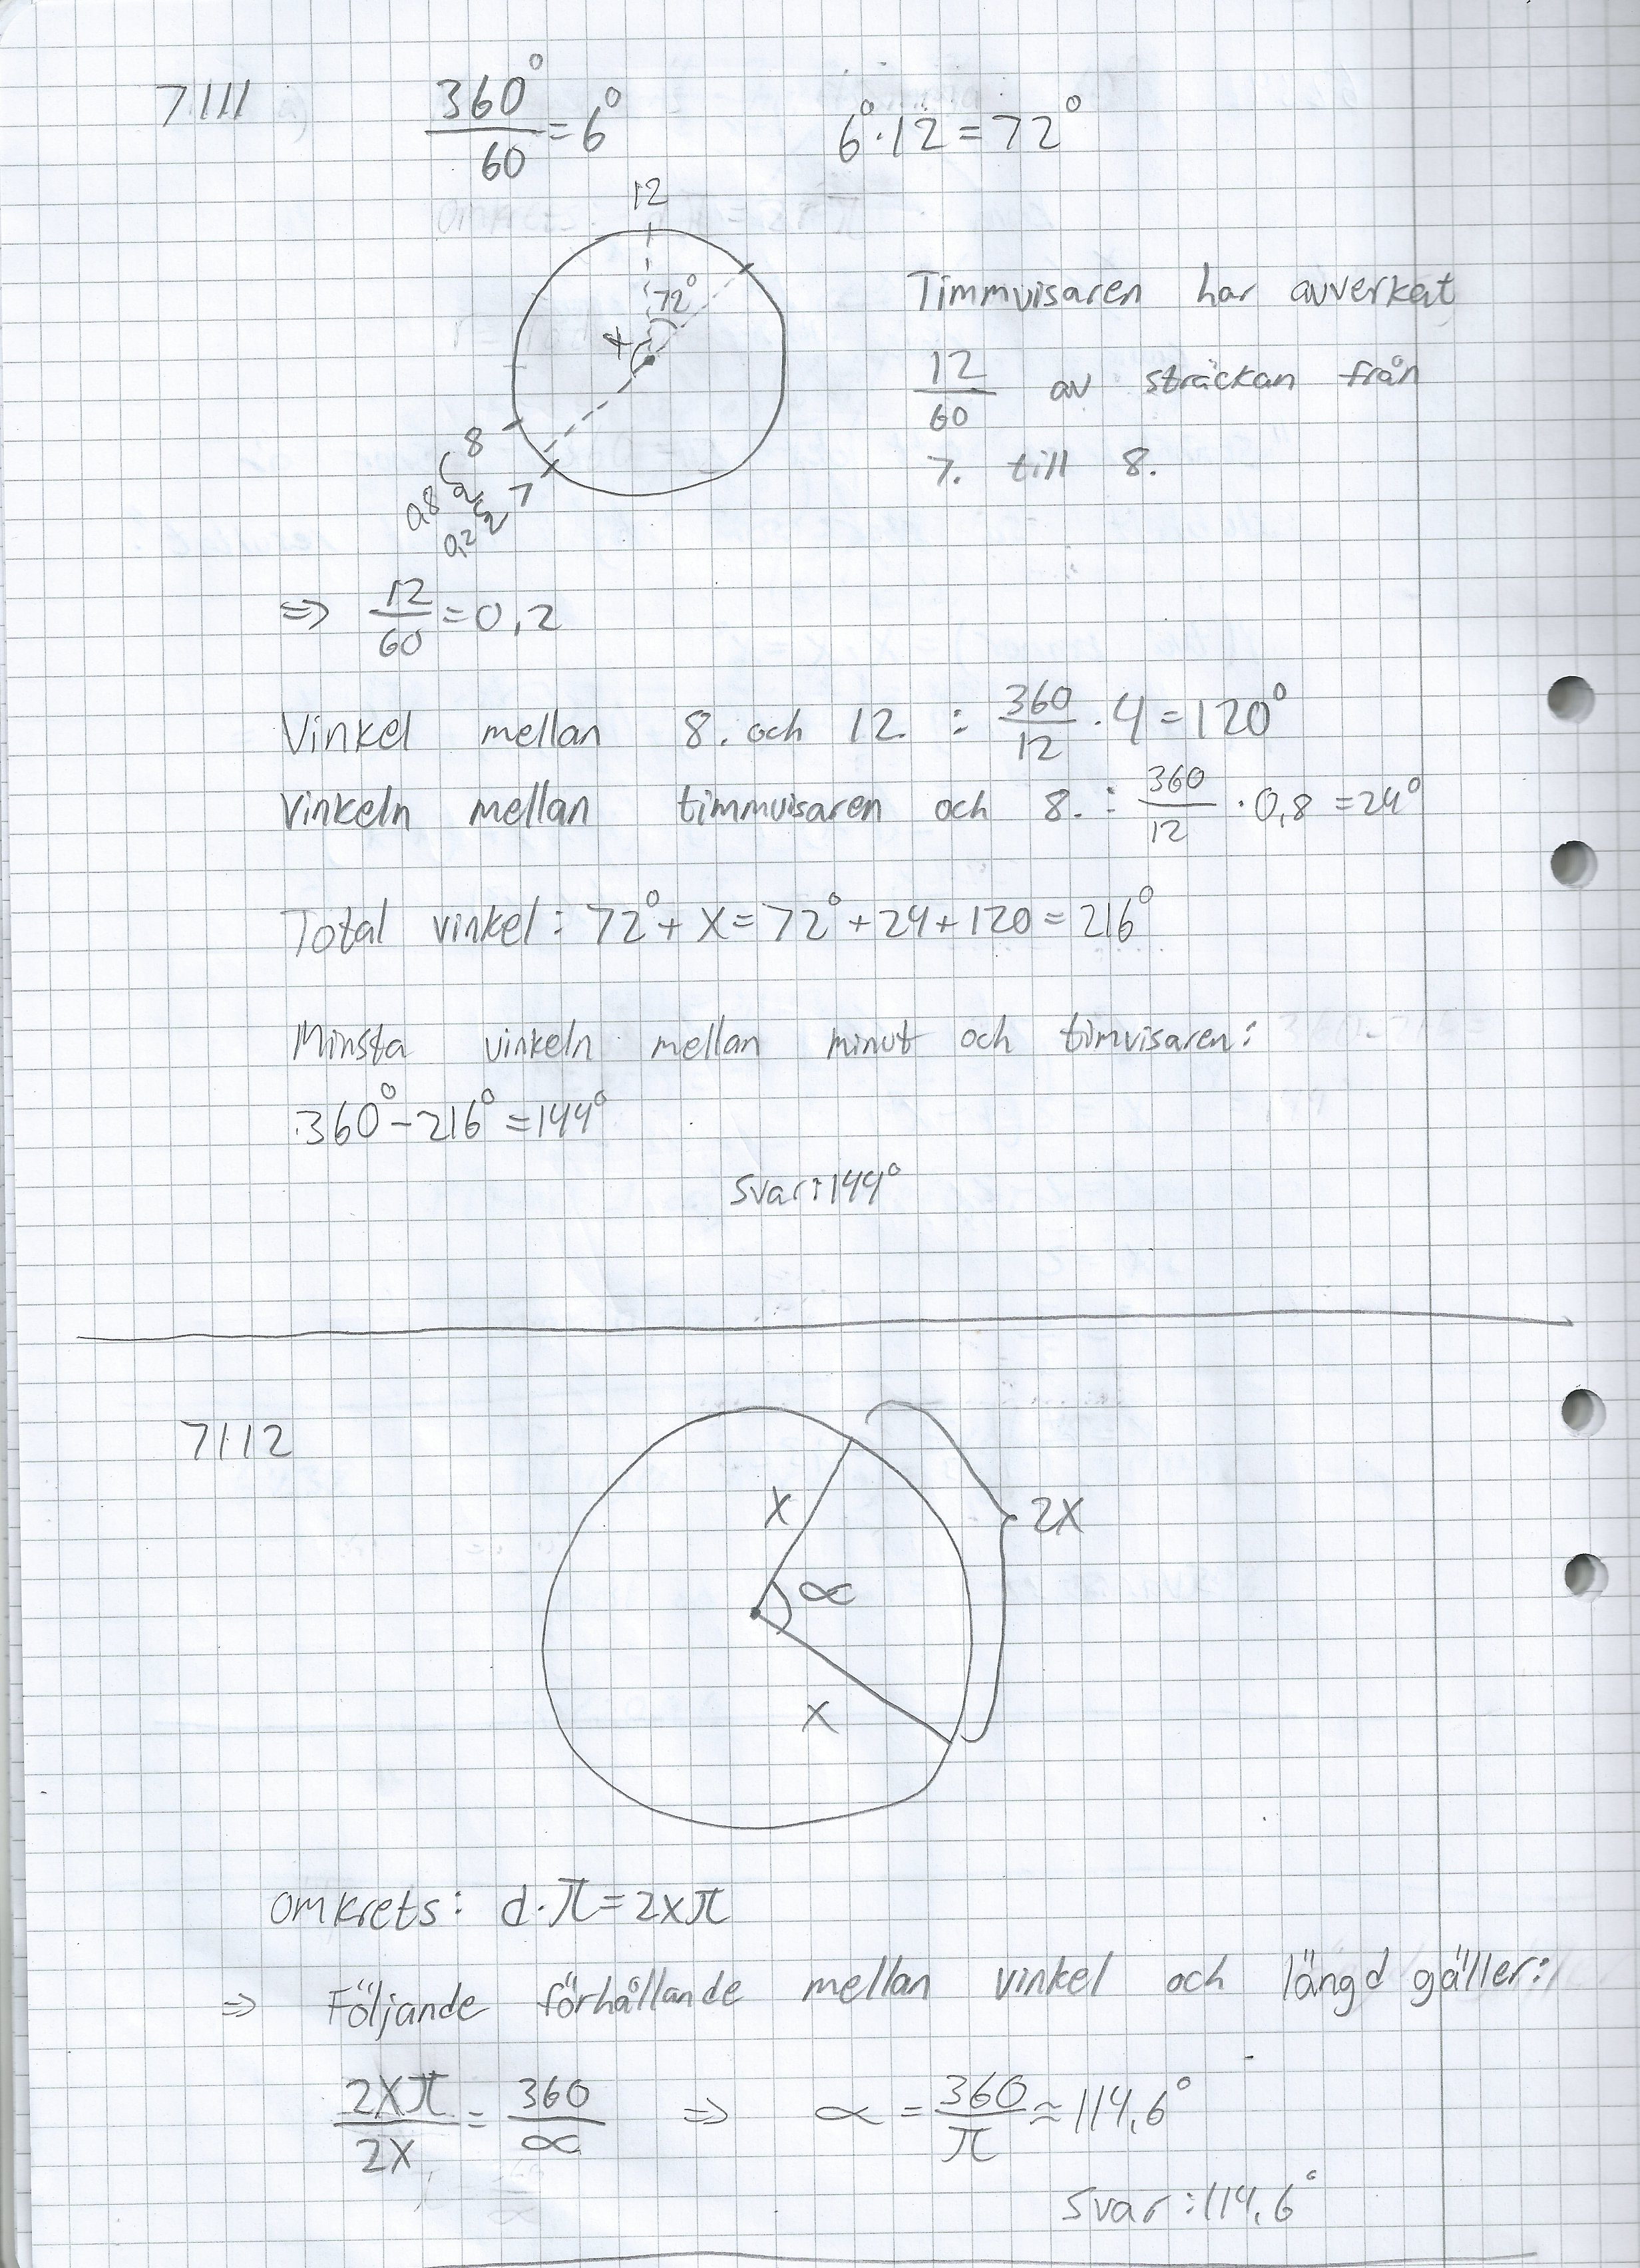 7111
360°/60 = 6°
6°·12 = 72°
12
72°
x
8
7
0,8
0,2
Timmvisaren har avverkat
12/60 av sträckan från
7. till 8.
⇒ 12/60 = 0,2
Vinkel mellan 8. och 12. : 360/12 · 4 = 120°
Vinkeln mellan timmvisaren och 8. : 360/12 · 0,8 = 24°
Total vinkel: 72° + x = 72° + 24 + 120 = 216°
Minsta vinkeln mellan minut och timvisaren:
360° - 216° = 144°
Svar: 144°
7112
x
2x
∝
x
omkrets: d·π = 2xπ
⇒ Följande förhållande mellan vinkel och längd gäller:
2xπ/2x = 360/∝ ⇒ ∝ = 360/π ≈ 114,6°
Svar: 114,6°